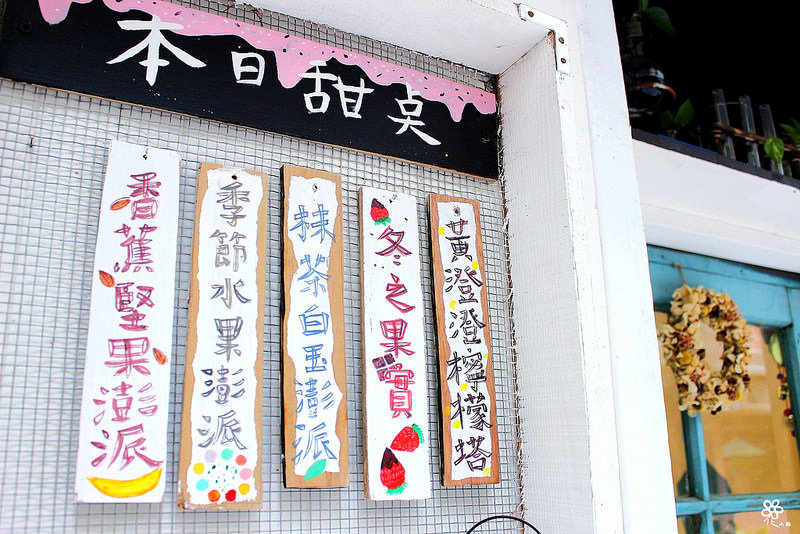 本日甜点
香蕉堅果澎派
季節水果澎派
抹茶白玉澎派
冬之果實
黃澄澄檸檬塔
花小錢